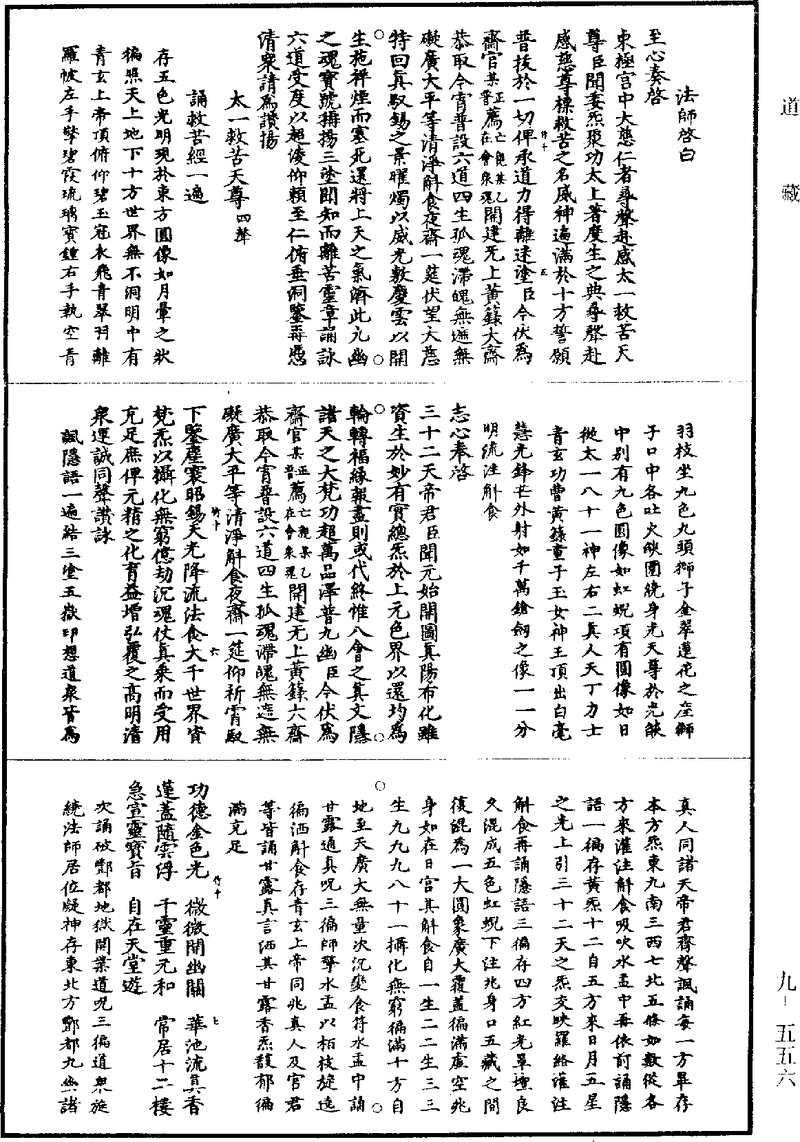 道藏
法師啓白
至心奏啓
東極宮中大慈仁者尋聲赴感太一救苦天
尊臣聞委炁聚功太上著度生之典尋聲赴
感慈尊標救苦之名威神遍滿於十方誓願
普拔於一切俾承道力得離迷塗臣今伏爲
齋官某正薦亡親某乙開建无上黃籙大齋
普在會衆魂
恭取今宵普設六道四生孤魂滯魄無遮無
礙廣大平等清淨斛食夜齋一筵伏望大慈
特回真馭錫之景曜燭以威光敷慶雲以開
生施祥煙而塞死還將上天之氣濟此九幽
之魂寶號稱揚三塗聞知而離苦靈章誦詠
六道受度以超淩仰賴至仁俯垂洞鑒再憑
清衆請爲讚揚
太一救苦天尊四聲
誦救苦經一遍
存五色光明現於東方圓像如月暈之狀
徧照天上地下十方世界無不洞明中有
青玄上帝頂俯仰碧玉冠衣飛青翠羽離
羅帔左手擎碧霞琉璃寶鍾右手執空青
羽枝坐九色九頭獅子金翠蓮花之座獅
子口中各吐火燄圍繞身光天尊於光燄
中別有九色圓像如虹蜺項有圓像如日
從太一八十一神左右二真人天丁力士
青玄功曹黃籙童子玉女神王頂出白毫
慧光鋒芒外射如千萬鎗劒之像一一分
明流注斛食
志心奉啓
三十二天帝君臣聞元始開圖真陽布化雖
資生於妙有實總炁於上元色界以還均爲
輪轉福緣報盡則或代終惟八會之真文隱
諸天之大梵功超萬品澤普九幽臣今伏爲
齋官某正薦亡親某乙開建无上黃籙大齋
普在會衆魂
恭取今宵普設六道四生孤魂滯魄無遮無
礙廣大平等清淨斛食夜齋一筵仰祈霄馭
下鑒塵寰昭錫天光降流法食大千世界資
梵炁以攝化無窮億劫沉魂仗真乘而受用
充足庶俾元精之化育益增弘覆之高明清
衆運誠同聲讚詠
諷隱語一遍結三塗五嶽印想道衆皆爲
真人同諸天帝君齊聲諷誦每一方畢存
本方炁東九南三西七北五條如數從各
方來灌注斛食吸吹水盂中再依前誦隱
語一徧存黃炁十二自五方來日月五星
之光上引三十二天之炁交映羅絡灌注
斛食再誦隱語三徧存四方紅光罩壇良
久混成五色虹蜺下注兆身口五藏之間
復混爲一大圓象廣大覆蓋徧滿虛空兆
身如在日宮其斛食自一生二二生三三
生九九九八十一攝化無窮徧滿十方自
地至天廣大無量次沉變食符水盂中誦
甘露通真呪三徧師擎水盂以栢枝旋遶
徧洒斛食存青玄上帝同兆真人及官君
等皆誦甘露真言洒其甘露香炁馥郁徧
滿充足
功德金色光　微微開幽關　華池流真香
蓮蓋隨雲浮　千靈重元和　常居十二樓
急宣靈寶旨　自在天堂遊
次誦破酆都地獄開業道呪三徧道衆旋
繞法師居位凝神存東北方酆都九幽諸
九－五五六